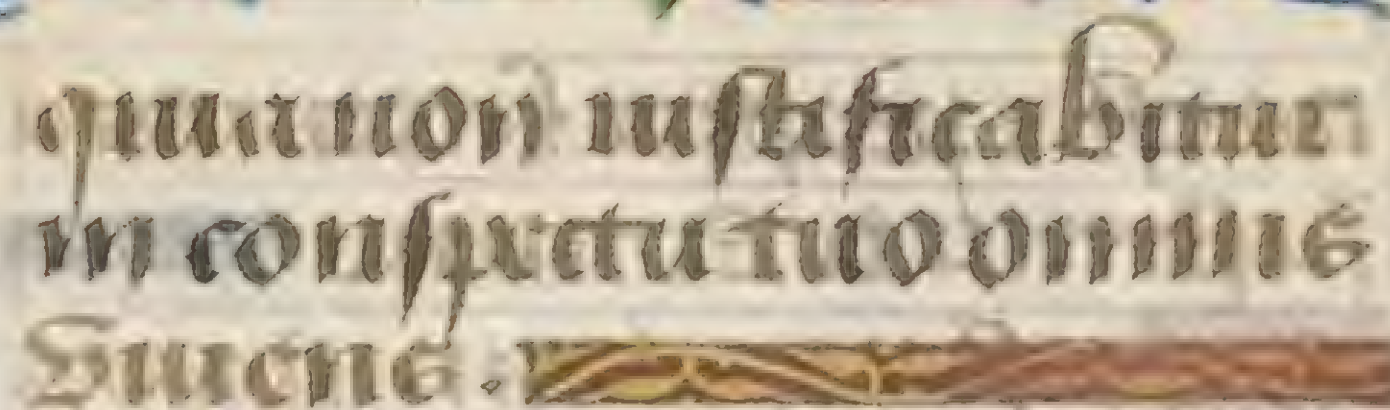 quia non iustificabitur
in conspectu tuo omnis
viuens.